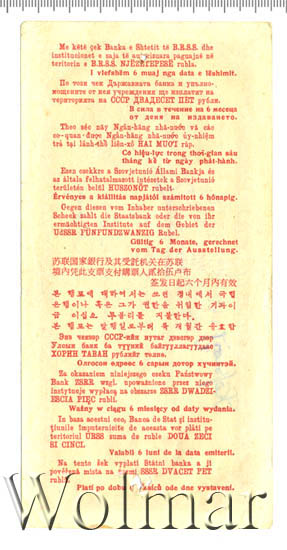 Me këtë çek Banka e Shtetit të B.R.S.S. dhe
institucionet e saja të autorizuara paguajnë në
teritorin e B.R.S.S. NJËZETEPESË rubla.
I vlefshëm 6 muaj nga data e lëshimit.
По този чек Държавната банка и упълно-
мощените от нея учреждения ще изплатят на
територията на СССР ДВАДЕСЕТ ПЕТ рубли.
В сила в течение на 6 месеца
от деня на издаването.
Theo séc này Ngân-hàng nhà-nước và các
cơ-quan được Ngân-hàng nhà-nước ủy-nhiệm
trả tại lãnh-thổ liên-xô HAI MƯƠI rúp.
Có hiệu-lực trong thời-gian sáu
tháng kể từ ngày phát-hành.
Ezen csekkre a Szovjetunió Állami Bankja és
az általa felhatalmazott intézetek a Szovjetunió
területén belül HUSZONÖT rubelt.
Érvényes a kiállítás napjától számított 6 hónapig.
Gegen diesen vom Inhaber unterschriebenen
Scheck zahlt die Staatsbank oder die von ihr
ermächtigten Institute auf dem Gebiet der
UdSSR FÜNFUNDZWANZIG Rubel.
Gültig 6 Monate, gerechnet
vom Tag der Ausstellung.
苏联国家银行及其受託机关在苏联
境内凭此支票支付購票人贰拾伍卢布
签发日起六个月内有效
본 행표에 대하여서는 쏘련 경내에서 국립
은행이나 혹은 그가 권한을 위임한 기관이
금 이십오 루블리를 지불한다.
본 행표는 발행일로부터 륙 개월간 유효함
Энэ чекээр СССР-ийн нутаг дэвсгэр дээр
Улсын банк ба түүний байгууллагуудаас
ХОРИН ТАВАН рублийг төлнө.
Олгосон өдрөөс 6 сарын дотор хүчинтэй.
Za okazaniem niniejszego czeku Państwowy
Bank ZSRR wzgl. upoważnione przez niego
instytucje wypłacą na obszarze ZSRR DWADZIE-
ŚCIA PIĘĆ rubli.
Ważny w ciągu 6 miesięcy od daty wydania.
In baza acestui cec, Banca de Stat şi institu-
ţiunile împuternicite de aceasta vor plăti pe
teritoriul URSS suma de ruble DOUĂ ZECI
ŞI CINCI.
Valabil 6 luni de la data emiterii.
Na tento šek vyplatí Státní banka a jí
pověřená místa na území SSSR DVACET PĚT
rublů.
Platí po dobu 6 měsíců ode dne vystavení.
Wolmar